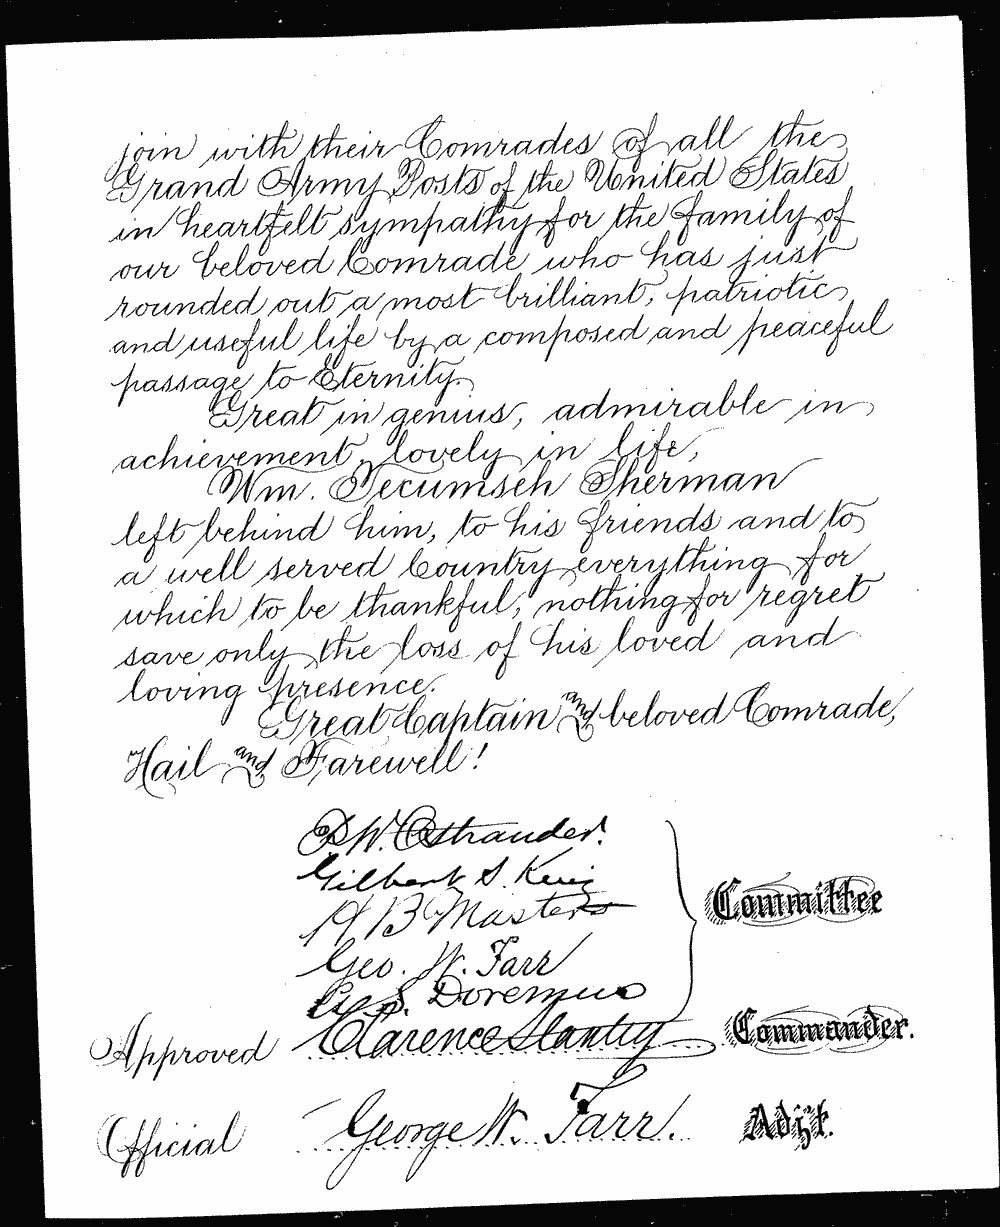 join with their Comrades of all the
Grand Army Posts of the United States
in heartfelt sympathy for the family of
our beloved Comrade who has just
rounded out a most brilliant, patriotic
and useful life by a composed and peaceful
passage to Eternity.
Great in genius, admirable in
achievement, lovely in life,
Wm. Tecumseh Sherman
left behind him, to his friends and to
a well served Country everything for
which to be thankful; nothing for regret
save only the loss of his loved and
loving presence.
Great Captain and beloved Comrade,
Hail and Farewell!
P. W. Ostrander.
Gilbert S. King
H B Masters
Geo. W. Farr
S. Doremus
Committee
Approved Clarence Stanley Commander.
Official George W. Farr. Adjt.